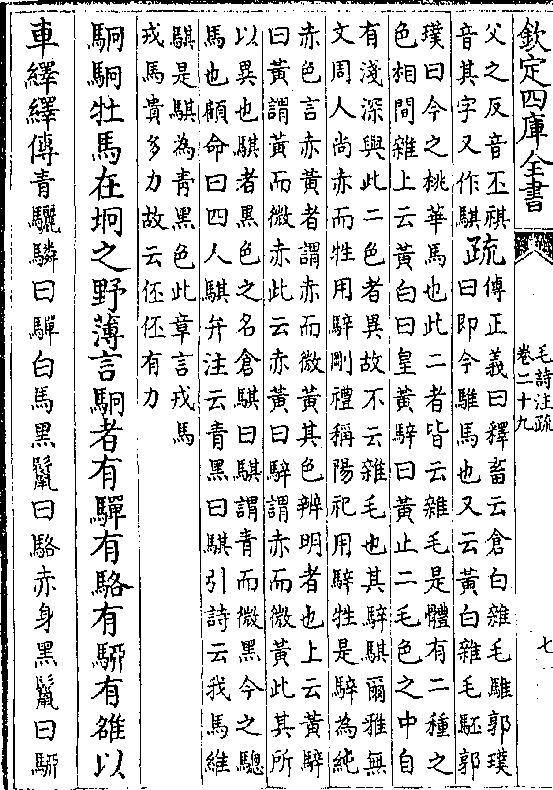 欽定四庫全書
毛詩注疏
卷二十九
七
父之反音丕祺
音其字又作騏
疏
傳正義曰釋畜云倉白雜毛騅郭璞
曰即今騅馬也又云黃白雜毛駓郭
璞曰今之桃華馬也此二者皆云雜毛是體有二種之
色相間雜上云黃白曰皇黃騂曰黃止二毛色之中自
有淺深與此二色者異故不云雜毛也其騂騏爾雅無
文周人尚赤而牲用騂剛禮稱陽祀用騂牲是騂為純
赤色言赤黃者謂赤而微黃其色辨明者也上云黃騂
曰黃謂黃而微赤此云赤黃曰騂謂赤而微黃此其所
以異也騏者黑色之名倉騏曰騏謂青而微黑今之驄
馬也顧命曰四人騏弁注云青黑曰騏引詩云我馬維
騏是騏為青黑色此章言戎馬
戎馬貴多力故云伾伾有力
駉駉牡馬在坰之野薄言駉者有驒有駱有駵有雒以
車繹繹傳青驪驎曰驒白馬黑鬛曰駱赤身黑鬛曰駵